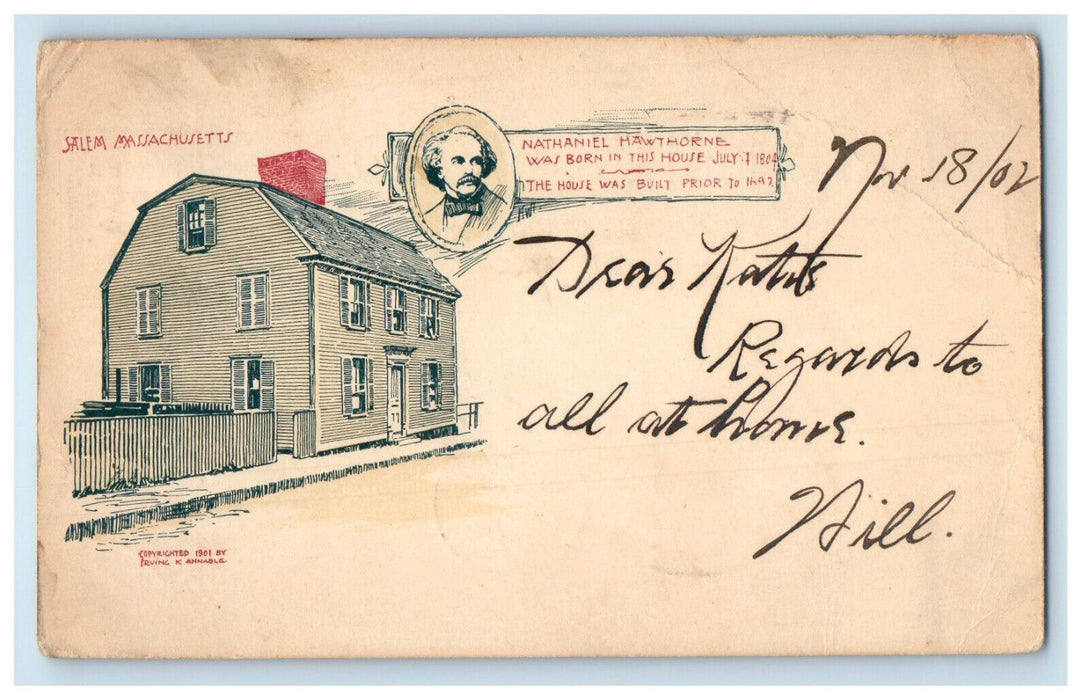 SALEM MASSACHUSETTS
NATHANIEL HAWTHORNE
WAS BORN IN THIS HOUSE JULY 4 1804
THE HOUSE WAS BUILT PRIOR TO 1692
Nov 18/02
Dear
Regards to
all at home.
Will.
COPYRIGHTED 1901 BY
IRVING K ANNABLE